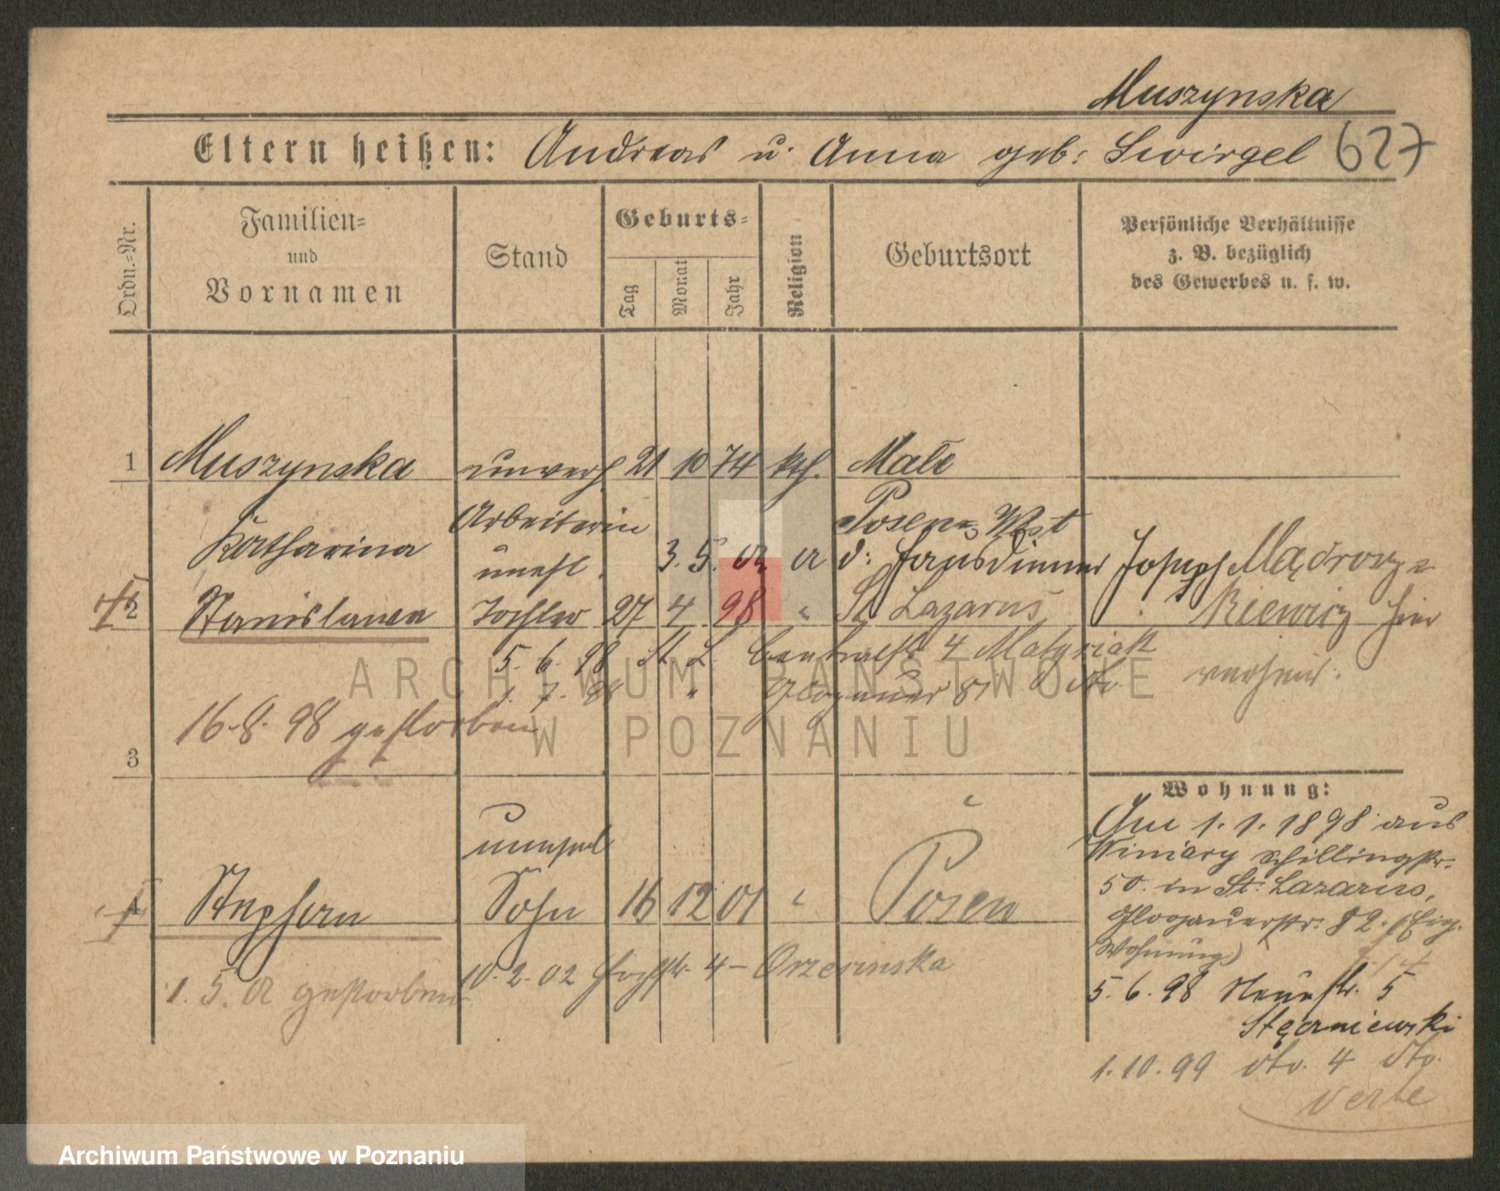 Muszynska
Eltern heißen: Andreas u. Anna geb: Swirgel 627
Ordn.-Nr.
Familien-
und
Vornamen
Stand
Geburts-
Tag
Monat
Jahr
Religion
Geburtsort
Persönliche Verhältnisse
z. B. bezüglich
des Gewerbes u. s. w.
1 Muszynska unverh. 21 10 74 kth.
Posen West
Katharina Arbeiterin
unehl. 3. 5. 02 d:
Joseph Mądrow
2 Stanislawa Tochter 27 4 98 " St Lazarus
kiewicz hier
5. 6. 98 St. L. 4 Matysiak
1. 7. 98 " Glogauer 81 dto
verheir.
16.8.98 gestorben
3
Wohnung:
Am 1. 1. 1898 aus
Winiary Schillingstr.
50. in St. Lazarus,
Glogauerstr. 82.
Wohnung)
5. 6. 98 Neuestr. 5
Stęrniewski
1. 10. 99 dto. 4 dto.
verte
unehel
4 Stephan Sohn 16 12 01 " Posen
10. 2. 02 4 - Orzeminska
1. 5. 02 gestorben
ARCHIWUM PAŃSTWOWE
W POZNANIU
Archiwum Państwowe w Poznaniu